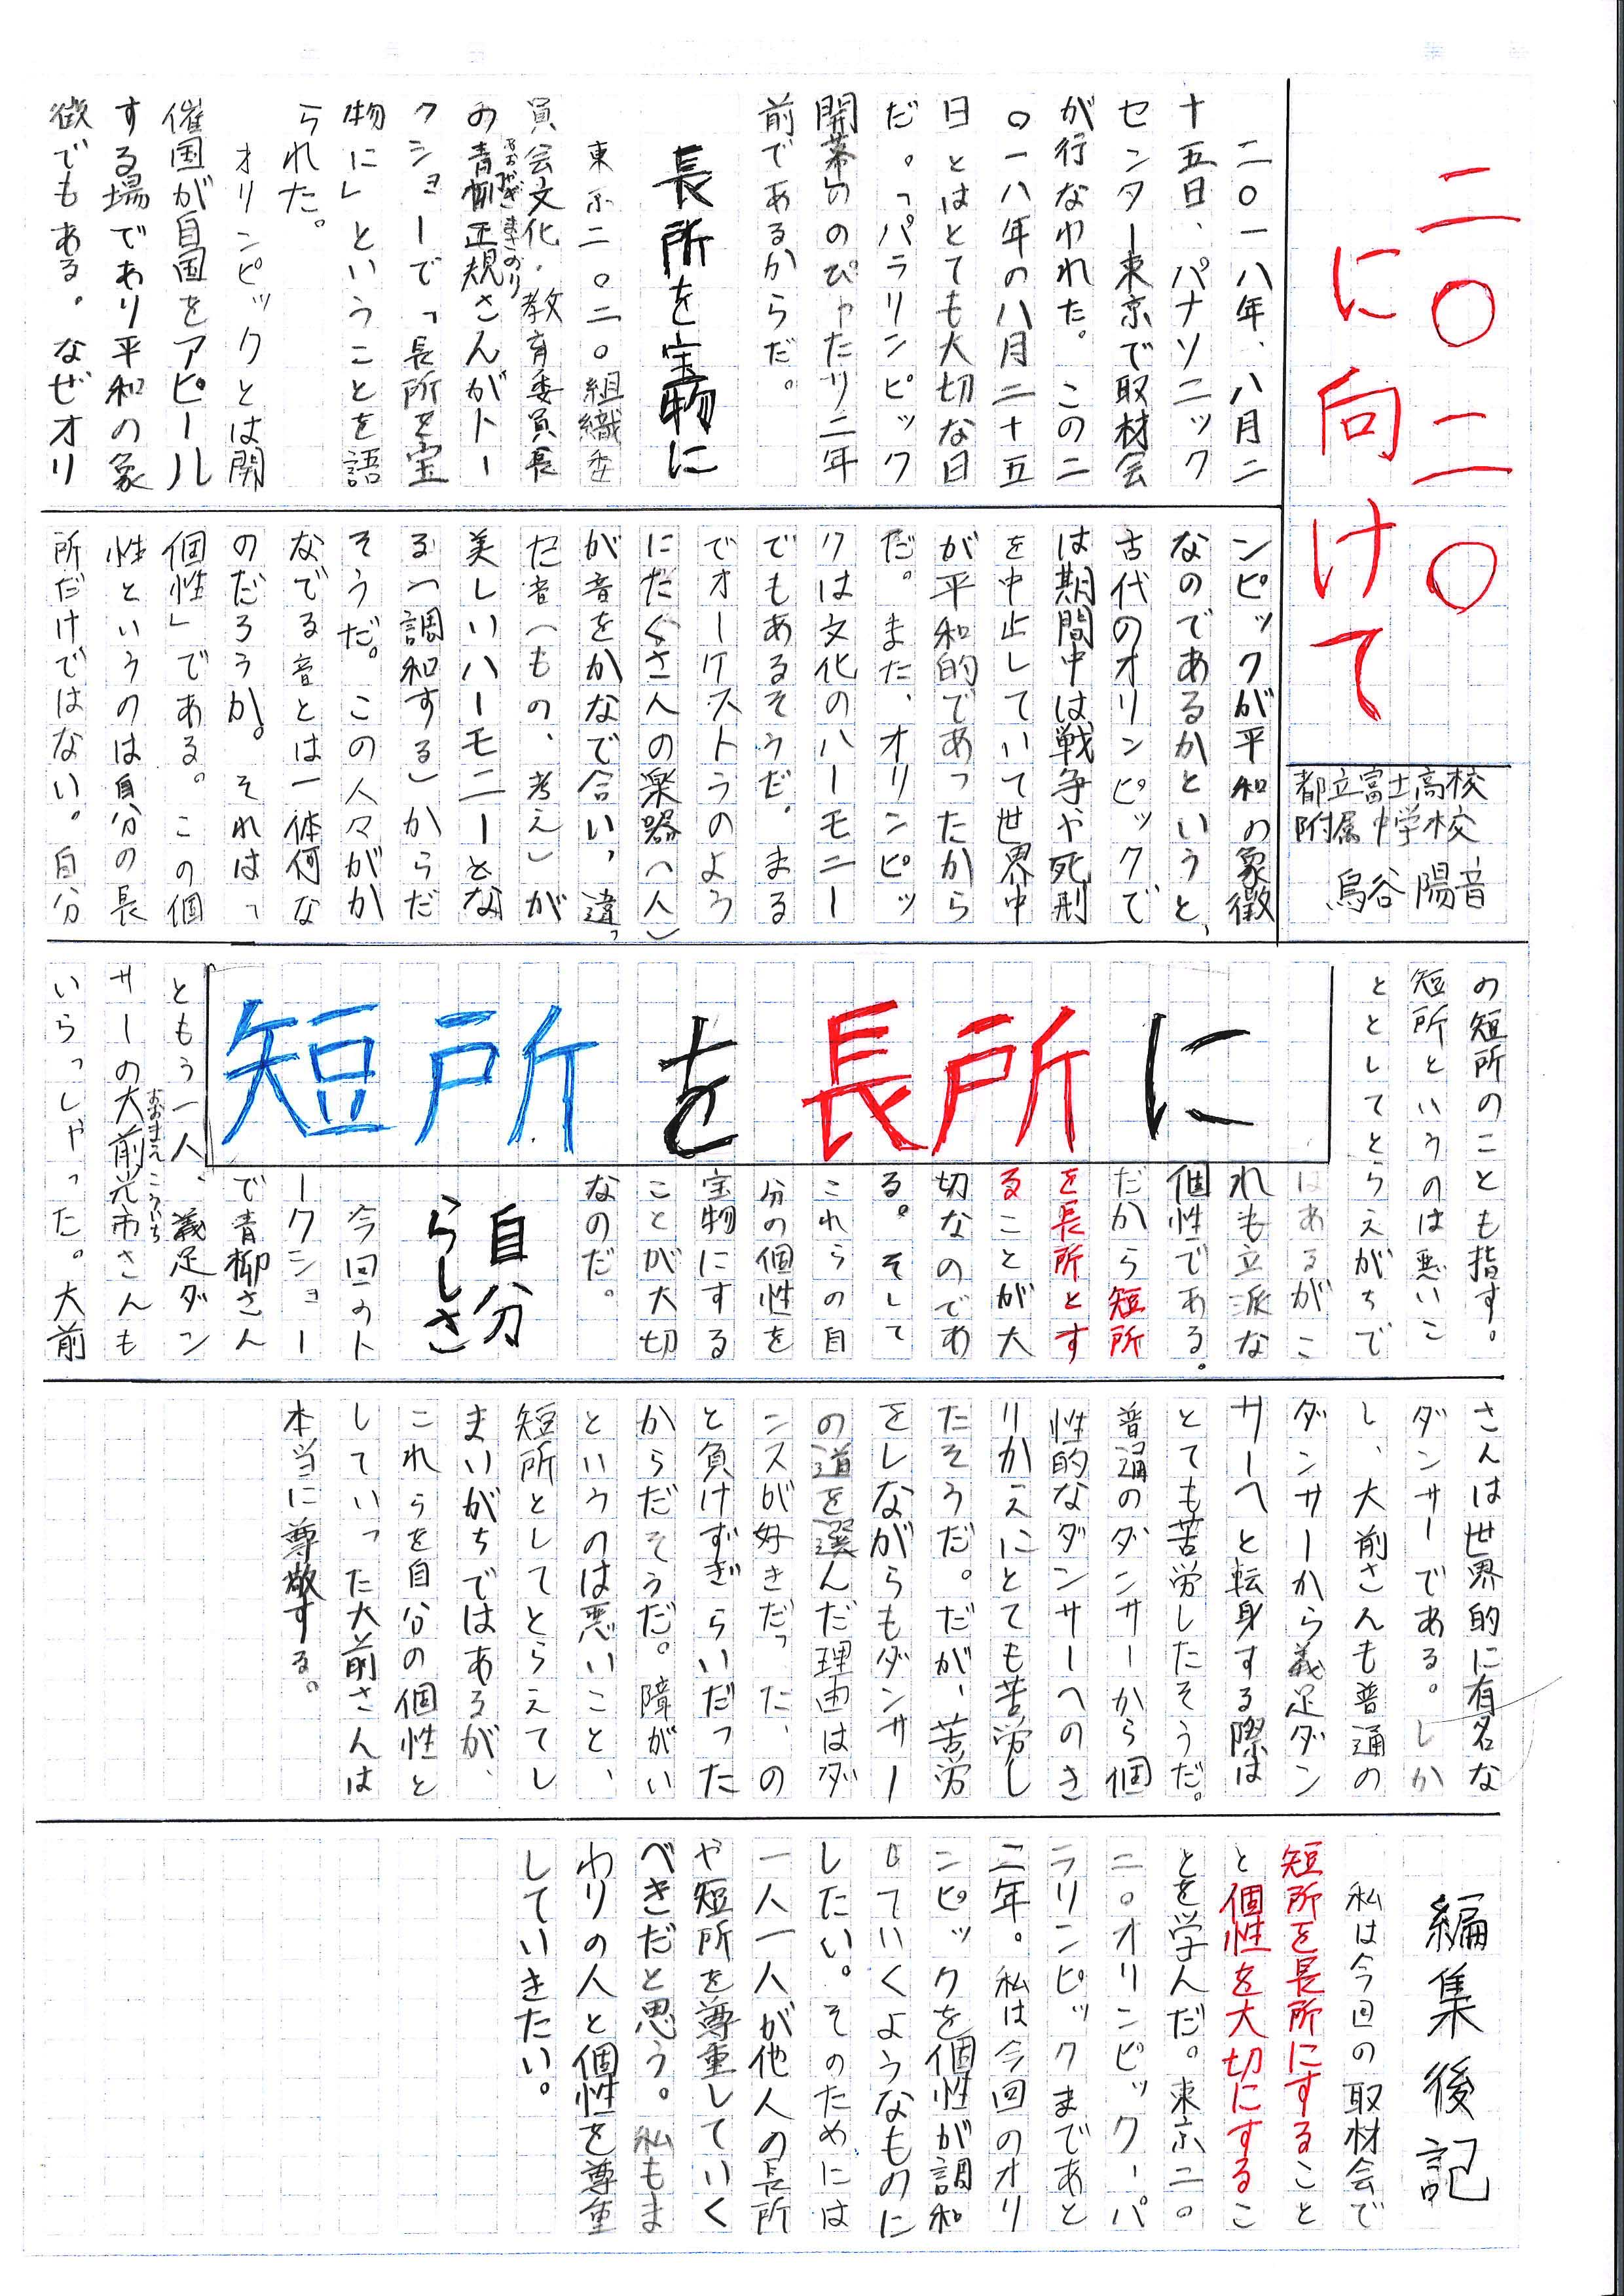 二〇二〇
に向けて
都立富士高校
附属中学校
鳥谷陽音
二〇一八年、八月二
十五日、パナソニック
センター東京で取材会
が行なわれた。この二
〇一八年の八月二十五
日とはとても大切な日
だ。「パラリンピック
開幕」ののぴったり二年
前であるからだ。
長所を宝物に
東京二〇二〇組織委
員会文化・教育委員長
の青柳正規さんがトー
あおやぎまさのり
クショーで「長所を宝
物に」ということを語
られた。
オリンピックとは開
催国が自国をアピール
する場であり平和の象
徴でもある。なぜオリ
ンピックが平和の象徴
なのであるかというと、
古代のオリンピックで
は期間中は戦争や死刑
を中止していて世界中
が平和的であったから
だ。また、オリンピッ
クは文化のハーモニー
でもあるそうだ。まる
でオーケストラのよう
にたくさんの楽器(人)
が音をかなで合い、違っ
た音(もの、考え)が
美しいハーモニーとな
る(調和する)からだ
そうだ。この人々がか
なでる音とは一体何な
のだろうか。それは「
個性」である。この個
性というのは自分の長
所だけではない。自分
の短所のことも指す。
短所というのは悪いこ
ととしてとらえがちで
はあるがこ
れも立派な
個性である。
だから短所
を長所とす
ることが大
切なのであ
る。そして
これらの自
分の個性を
宝物にする
ことが大切
なのだ。
短所を長所に
自分
らしさ
今回のト
ークショー
で青柳さん
ともう一人、義足ダン
サーの大前光市さんも
おおまえこういち
いらっしゃった。大前
さんは世界的に有名な
ダンサーである。しか
し、大前さんも普通の
ダンサーから義足ダン
サーへと転身する際は
とても苦労したそうだ。
普通のダンサーから個
性的なダンサーへのき
りかえにとても苦労し
たそうだ。だが、苦労
をしながらもダンサー
の道を選んだ理由はダ
ンスが好きだった、の
と負けずぎらいだった
からだそうだ。障がい
というのは悪いこと、
短所としてとらえてし
まいがちではあるが、
これらを自分の個性と
していった大前さんは
本当に尊敬する。
編集後記
私は今回の取材会で
短所を長所にすること
と個性を大切にするこ
とを学んだ。東京二〇
二〇オリンピック・パ
ラリンピックまであと
二年。私は今回のオリ
ンピックを個性が調和
していくようなものに
したい。そのためには
一人一人が他人の長所
や短所を尊重していく
べきだと思う。私もま
わりの人と個性を尊重
していきたい。